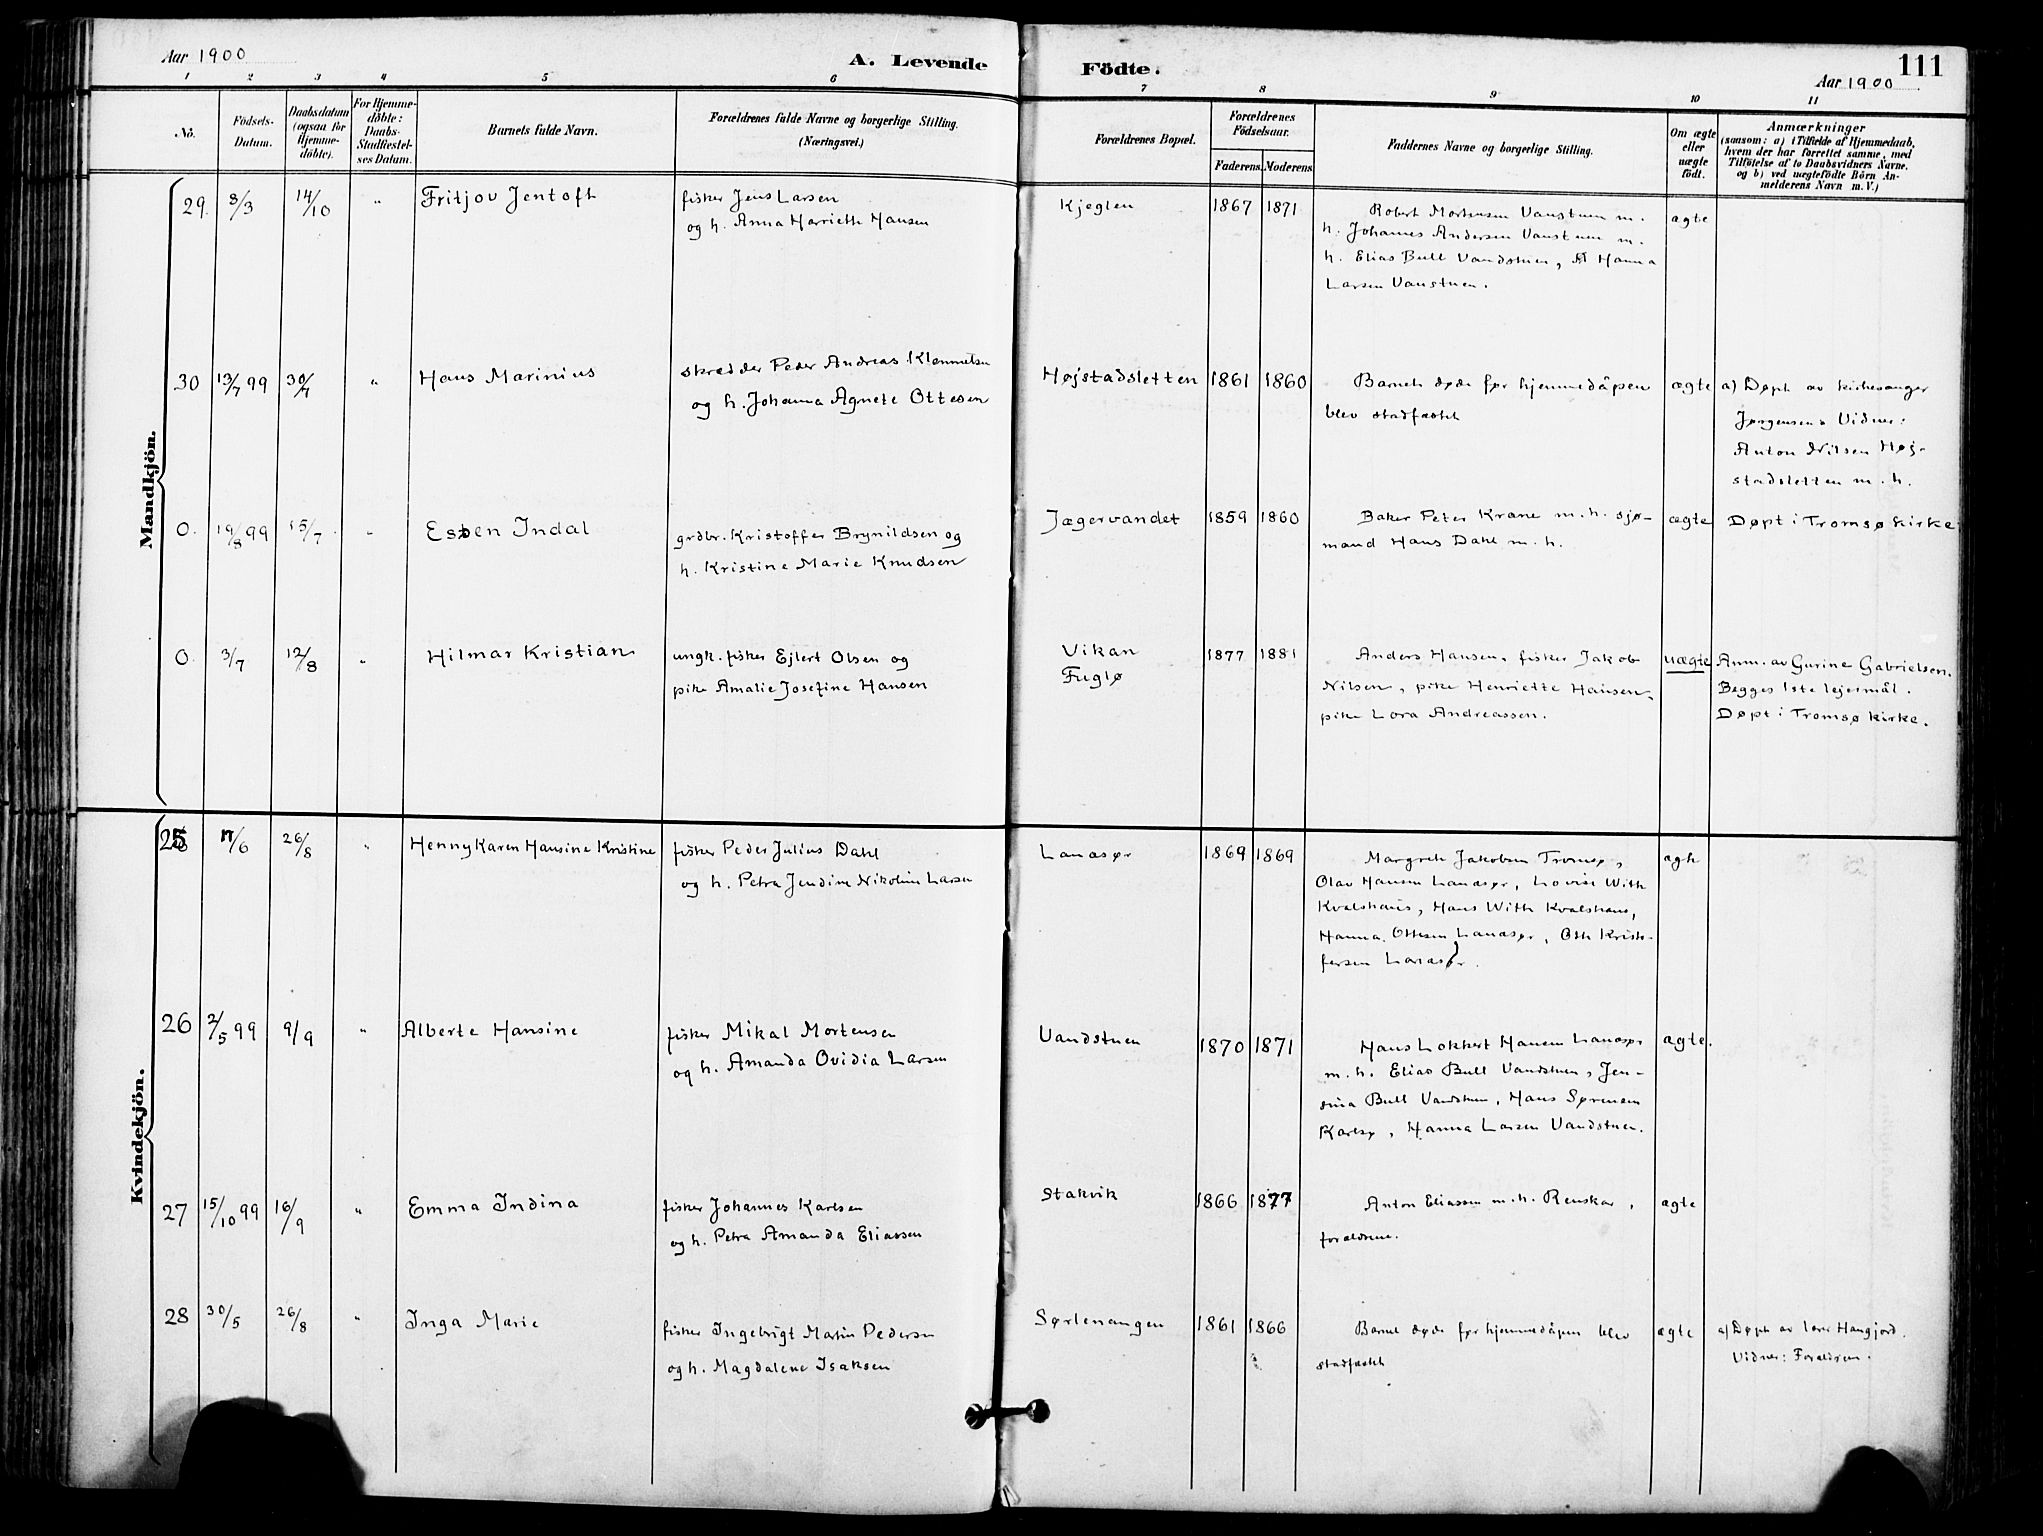 Aar 1900
A. Levende Födte.
111
Aar 1900
1 2 3 4 5 6 7 8 9 10 11
No.
Födsels-
Datum.
Daabsdatum
(ogsaa for
Hjemme-
döbte).
For Hjemme-
döbte:
Daabs-
Stadfæstel-
ses Datum.
Barnets fulde Navn.
Forældrenes fulde Navne og borgerlige Stilling.
(Næringsvei.)
Forældrenes Bopæl.
Forældrenes
Födselsaar.
Faderens. Moderens
Faddernes Navne og borgerlige Stilling.
Om ægte
eller
uægte
födt.
Anmærkninger
(saasom: a) i Tilfælde af Hjemmedaab,
hvem der har forrettet samme, med
Tilföielse af to Daabsvidners Navne.
og b) ved uægtefödte Börn An-
melderens Navn m. V.)
Mandkjön.
29. 3/3 14/10 " Fritjov Jentoft
fisker Jens Larsen
og h. Anna Harriette Hansen
Kjeglen 1867 1871
Robert Mortensen Vanstuen m.
h. Johannes Andersen Vanstuen m.
h. Elias Bull Vandstuen, Hanna
Larsen Vanstuen.
ægte
30 13/7 99 30/7 " Hans Marinius
skrædder Peder Andreas Klemmetsen
og h. Johanna Agnete Ottesen
Højstadsletten 1861 1860
Barnet døde før hjemmedåpen
blev stadfæstet
ægte
a) Døpt av kirkesanger
Jørgensen. Vidner:
Anton Nilsen Høj-
stadsletten m. h.
0. 19/8 99 15/7 " Esben Indal
grdbr. Kristoffer Brynildsen og
h. Kristine Marie Knudsen
Jægervandet 1859 1860
Baker Peter Krane m. h. sjø-
mand Hans Dahl m. h.
ægte
Døpt i Tromsø kirke
0. 3/7 12/8 " Hilmar Kristian
ungk. fisker Ejlert Olsen og
pike Amalie Josefine Hansen
Vikan
Fuglø
1877 1881
Anders Hansen, fisker Jakob
Nilsen, pike Henriette Hansen,
pike Lora Andreassen.
uægte
Anm. av Gurine Gabrielsen.
Begges 1ste lejermål.
Døpt i Tromsø kirke.
Kvindekjön.
25 17/6 26/8 " Henny Karen Hansine Kristine
fisker Peder Julius Dahl
og h. Petra Jendine Nikoline Larsen
Lanæsør 1869 1869
Margrete Jakobsen Tromsø,
Olav Hansen Lanæsør, Lovise With
Kvalshaus, Hans With Kvalshaus,
Hanna Ottesen Lanæsør, Otto Kristo-
fersen Lanæsør.
ægte
26 2/5 99 9/9 " Alberte Hansine
fisker Mikal Mortensen
og h. Amanda Ovidia Larsen
Vandstuen 1870 1871
Hans Lokkert Hansen Lanæsør
m. h. Elias Bull Vandstuen, Jen-
sina Bull Vandstuen, Hans Sørensen
Karlsø, Hanna Larsen Vandstuen.
ægte.
27 15/10 99 16/9 " Emma Indina
fisker Johannes Karlsen
og h. Petra Amanda Eliassen
Stakvik 1866 1877
Anton Eliassen m. h. Renskar,
forældrene.
ægte
28 30/5 26/8 " Inga Marie
fisker Ingebrigt Martin Pedersen
og h. Magdalene Isaksen
Sørlenangen 1861 1866
Barnet døde før hjemmedåpen blev
stadfæstet
ægte
a) Døpt av lærer Hangjord.
Vidner: Forældrene.